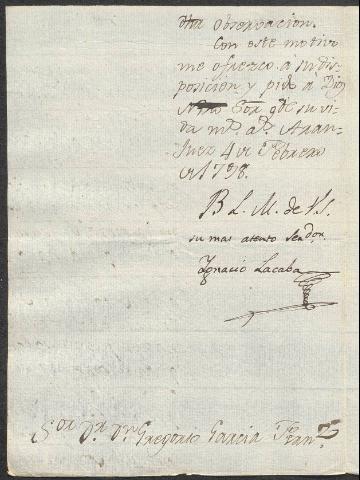 dha observacion.
Con este motivo
me ofrezco à su dis-
posicion, y pido à Dios
Nro Sor gde su vi-
da ms. as. Aran-
juez 4 de Febrero
de 1798.
B L. M. de V.S.
su mas atento servdor.
Ygnacio Lacaba
Sor Dr. Dn Gregorio Garcia Fernz